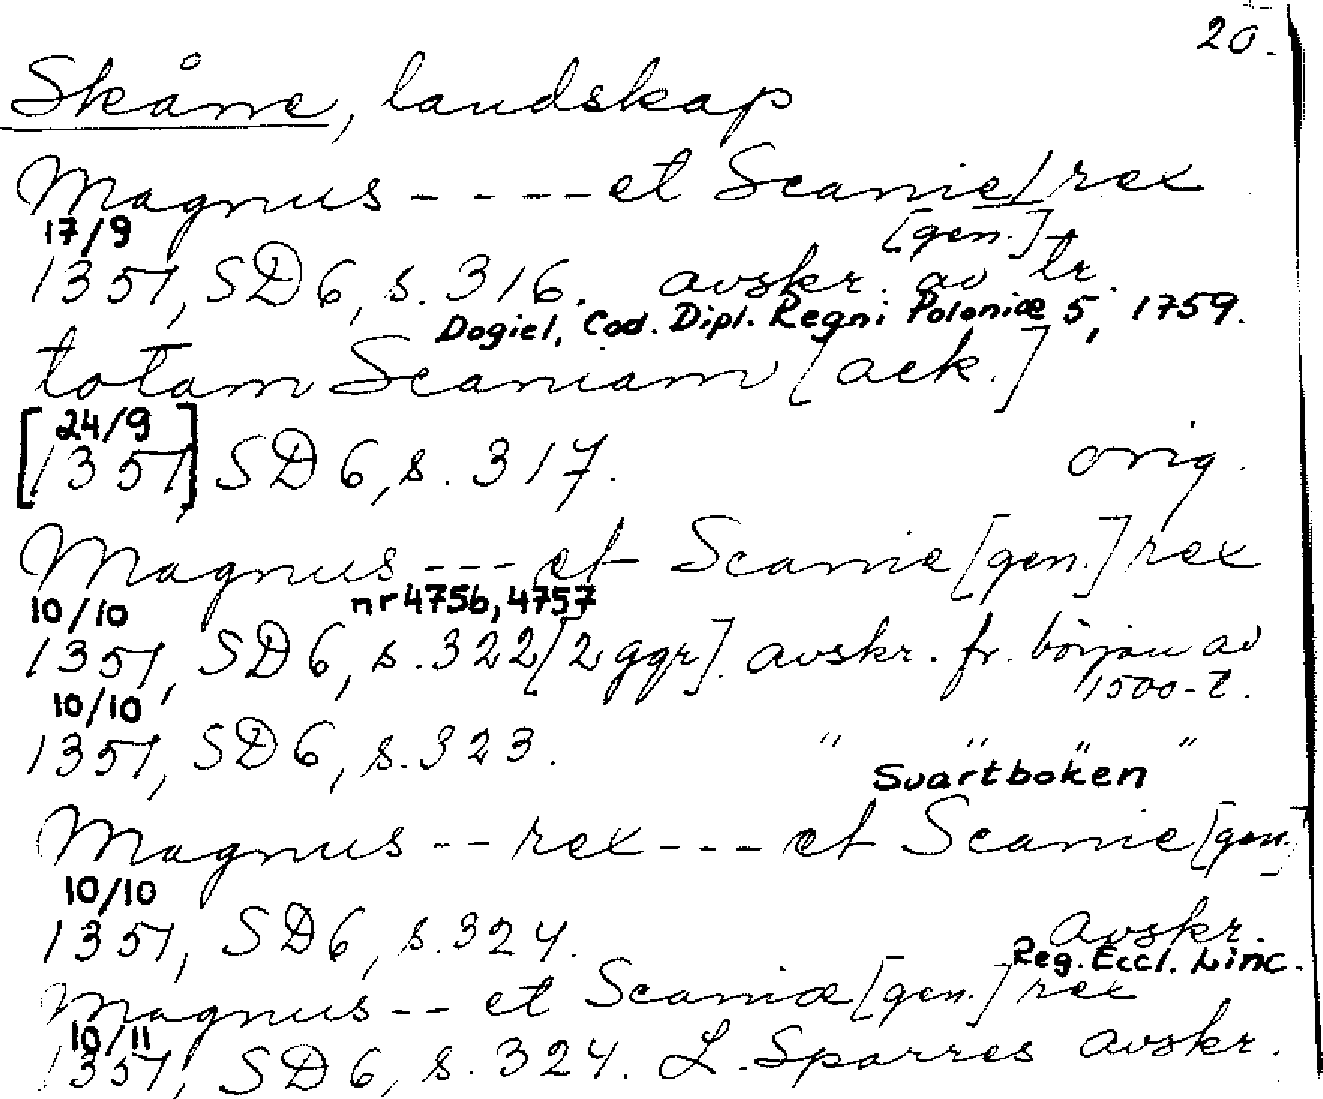 20.
Skåne, landskap
Magnus - - - - et Scanie / rex
17/9 [gen.]
1351, SD6, s. 316. avskr. av tr.
Dogiel, Cod. Dipl. Regni Poloniæ 5, 1759.
totam Scaniam [ack.]
24/9
[1351] SD6, s. 317. orig.
Magnus - - - et Scanie [gen.] rex
10/10 nr 4756, 4757
1351, SD6, s. 322 [2 ggr]. avskr. fr. början av
10/10 1500-t.
1351, SD6, s. 323. " " " "
Svartboken
Magnus - - rex - - - et Scanie [gen.]
10/10
1351, SD6, s. 324. avskr.
Reg. Eccl. Linc.
Magnus - - et Scaniæ [gen.] rex
10/11
1351, SD6, s. 324. L. Sparres avskr.